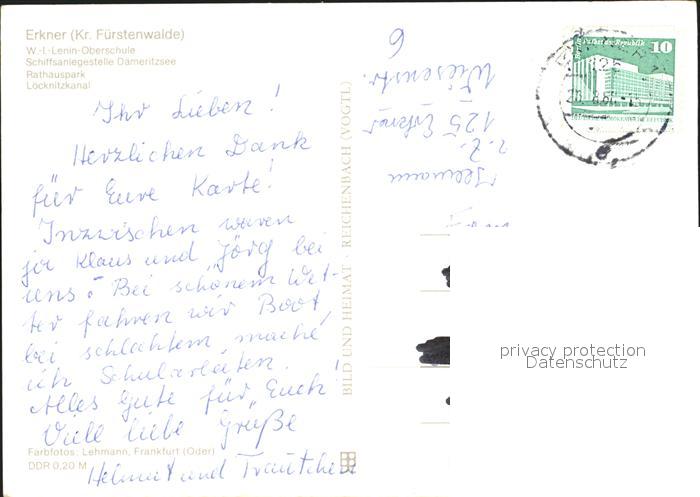 Erkner (Kr. Fürstenwalde)
W.-I.-Lenin-Oberschule
Schiffsanlegestelle Dämeritzsee
Rathauspark
Löcknitzkanal
Ihr Lieben!
Herzlichen Dank
für Eure Karte!
Inzwischen waren
ja Klaus und Jörg bei
uns. Bei schönem Wet-
ter fahren wir Boot
bei schlechtem, mache
ich Schularbeiten.
Alles Gute für Euch!
Viele liebe Grüße
Helmut und Trautchen
Farbfotos: Lehmann, Frankfurt (Oder)
DDR 0,20 M
BILD UND HEIMAT · REICHENBACH (VOGTL)
z. Z.
125 Erkner
Wiesenstr. 6
10
125
privacy protection
Datenschutz